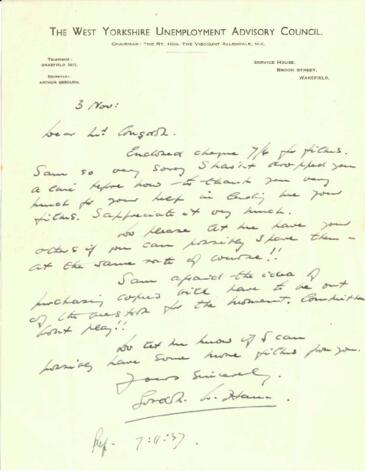 THE WEST YORKSHIRE UNEMPLOYMENT ADVISORY COUNCIL.
CHAIRMAN: THE RT. HON. THE VISCOUNT ALLENDALE, M.C.
TELEPHONE:
WAKEFIELD
SECRETARY:
ARTHUR
SERVICE HOUSE,
BROOK STREET,
WAKEFIELD.
3 Nov:
Dear
Enclosed cheque 7/6 for films.
I am so very sorry I hasn't dropped you
a line before now to thank you very
much for your help in lending me your
films. I appreciate it very much.
Do please let me have your
others if you can possibly spare them -
at the same rate of course!!
I am afraid the idea of
purchasing copies will have to be out
of the question for the moment. Committee
won't play!!
Do let me know if I can
possibly have some more films from you.
Yours Sincerely.
7.11.37.